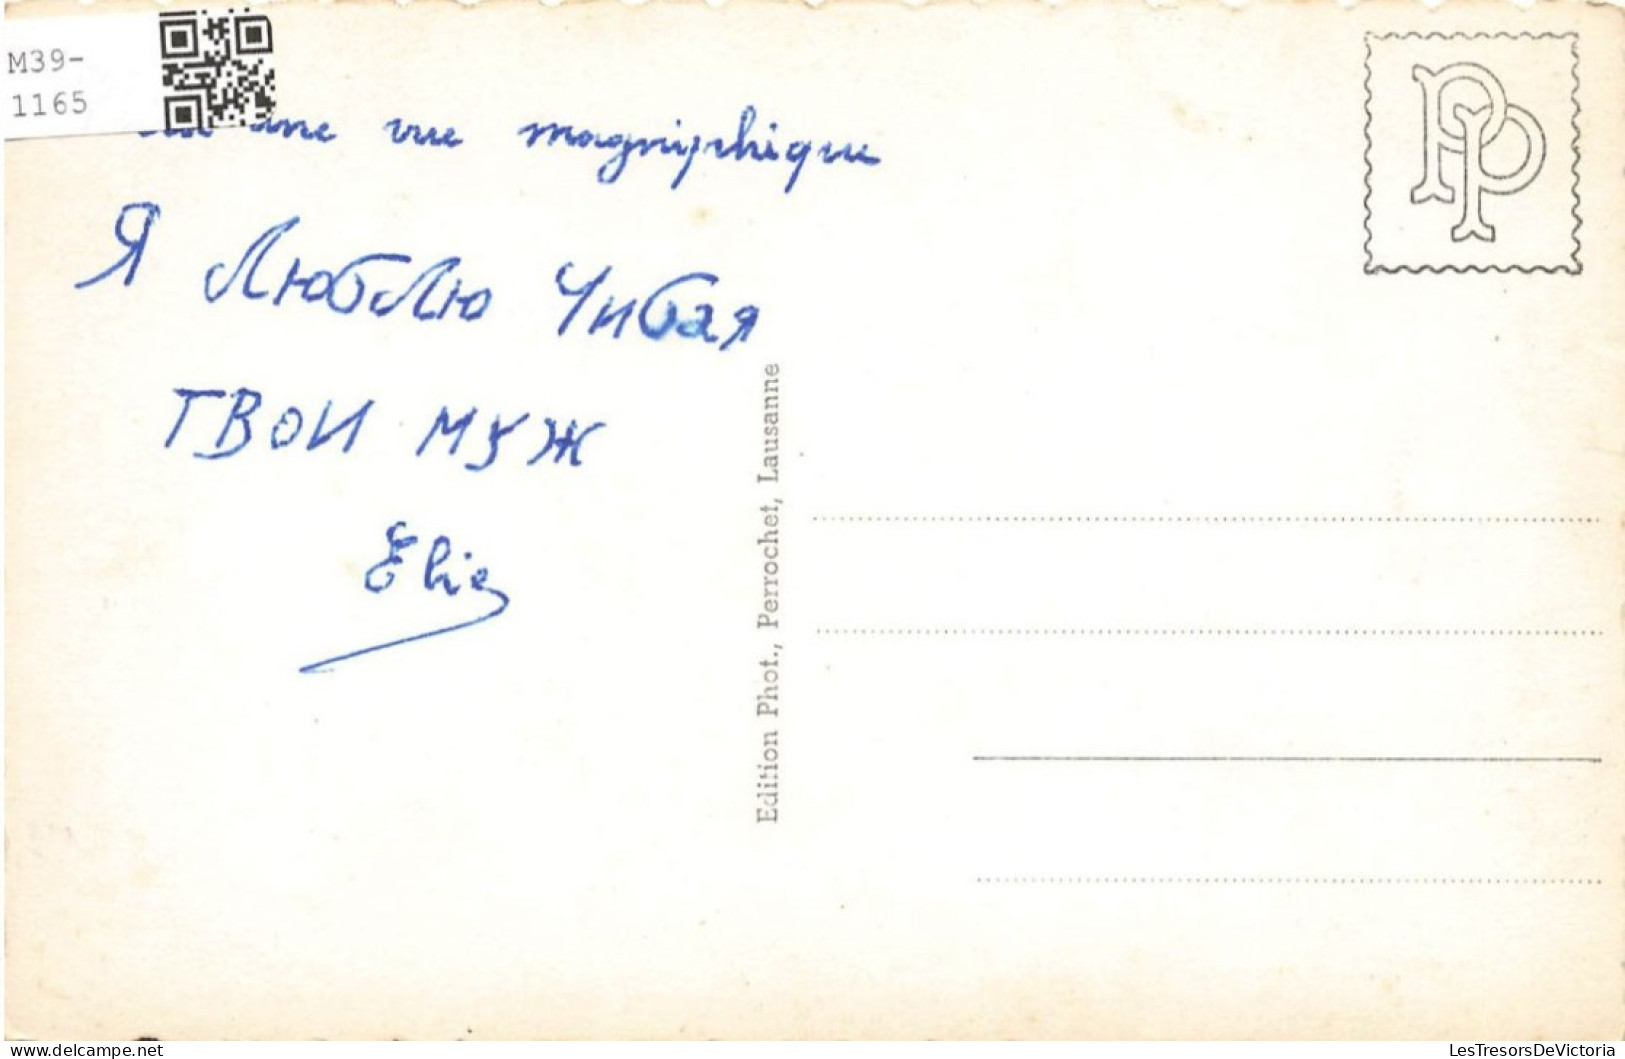 M39-
1165
une vue magniphique
Я Люблю Чибая
ТВОИ МУЖ
Elie
Edition Phot., Perrochet, Lausanne
PP
delcampe.net
LesTresorsDeVictoria